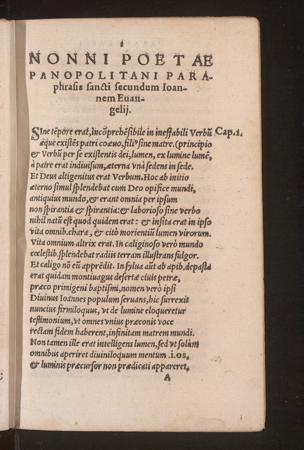 NONNI POETAE
PANOPOLITANI PARA
phrasis sancti secundum Ioan-
nem Euan-
gelij.
SIne tẽpore erat, incõprehẽsibile in ineffabili Verbũ Cap.1.
æque existẽs patri coæuo, filiꝰ sine matre. (principio
& Verbũ per se existentis dei, lumen, ex lumine lumẽ,
à patre erat indiuisum, æterna vnà sedens in sede.
Et Deus altigenitus erat Verbum. Hoc ab initio
æterno simul splendebat cum Deo opifice mundi,
antiquius mundo, & erant omnia per ipsum
non spirantia & spirantia: & laborioso sine verbo
nihil natũ est quod quidem erat: & insita erat in ipso
vita omnib. chara, & citò morientiũ lumen virorum.
Vita omnium altrix erat. In caliginoso verò mundo
cœlestib. splendebat radijs terram illustrans fulgor.
Et caligo nõ eũ apprẽdit. In sylua aũt ab apib. depasta
erat quidam montiuagus desertæ ciuis petræ,
præco primigeni baptismi, nomen verò ipsi
Diuinus Ioannes populum seruans, hic surrexit
nuncius firmiloquus, vt de lumine eloqueretur
testimonium, vt omnes vnius præconis voce
rectam fidem haberent, infinitam matrem mundi.
Non tamen ille erat intelligens lumen, sed vt solùm
omnibus aperiret diuiniloquum mentum .i. os,
& luminis præcursor non prædicati appareret,
A